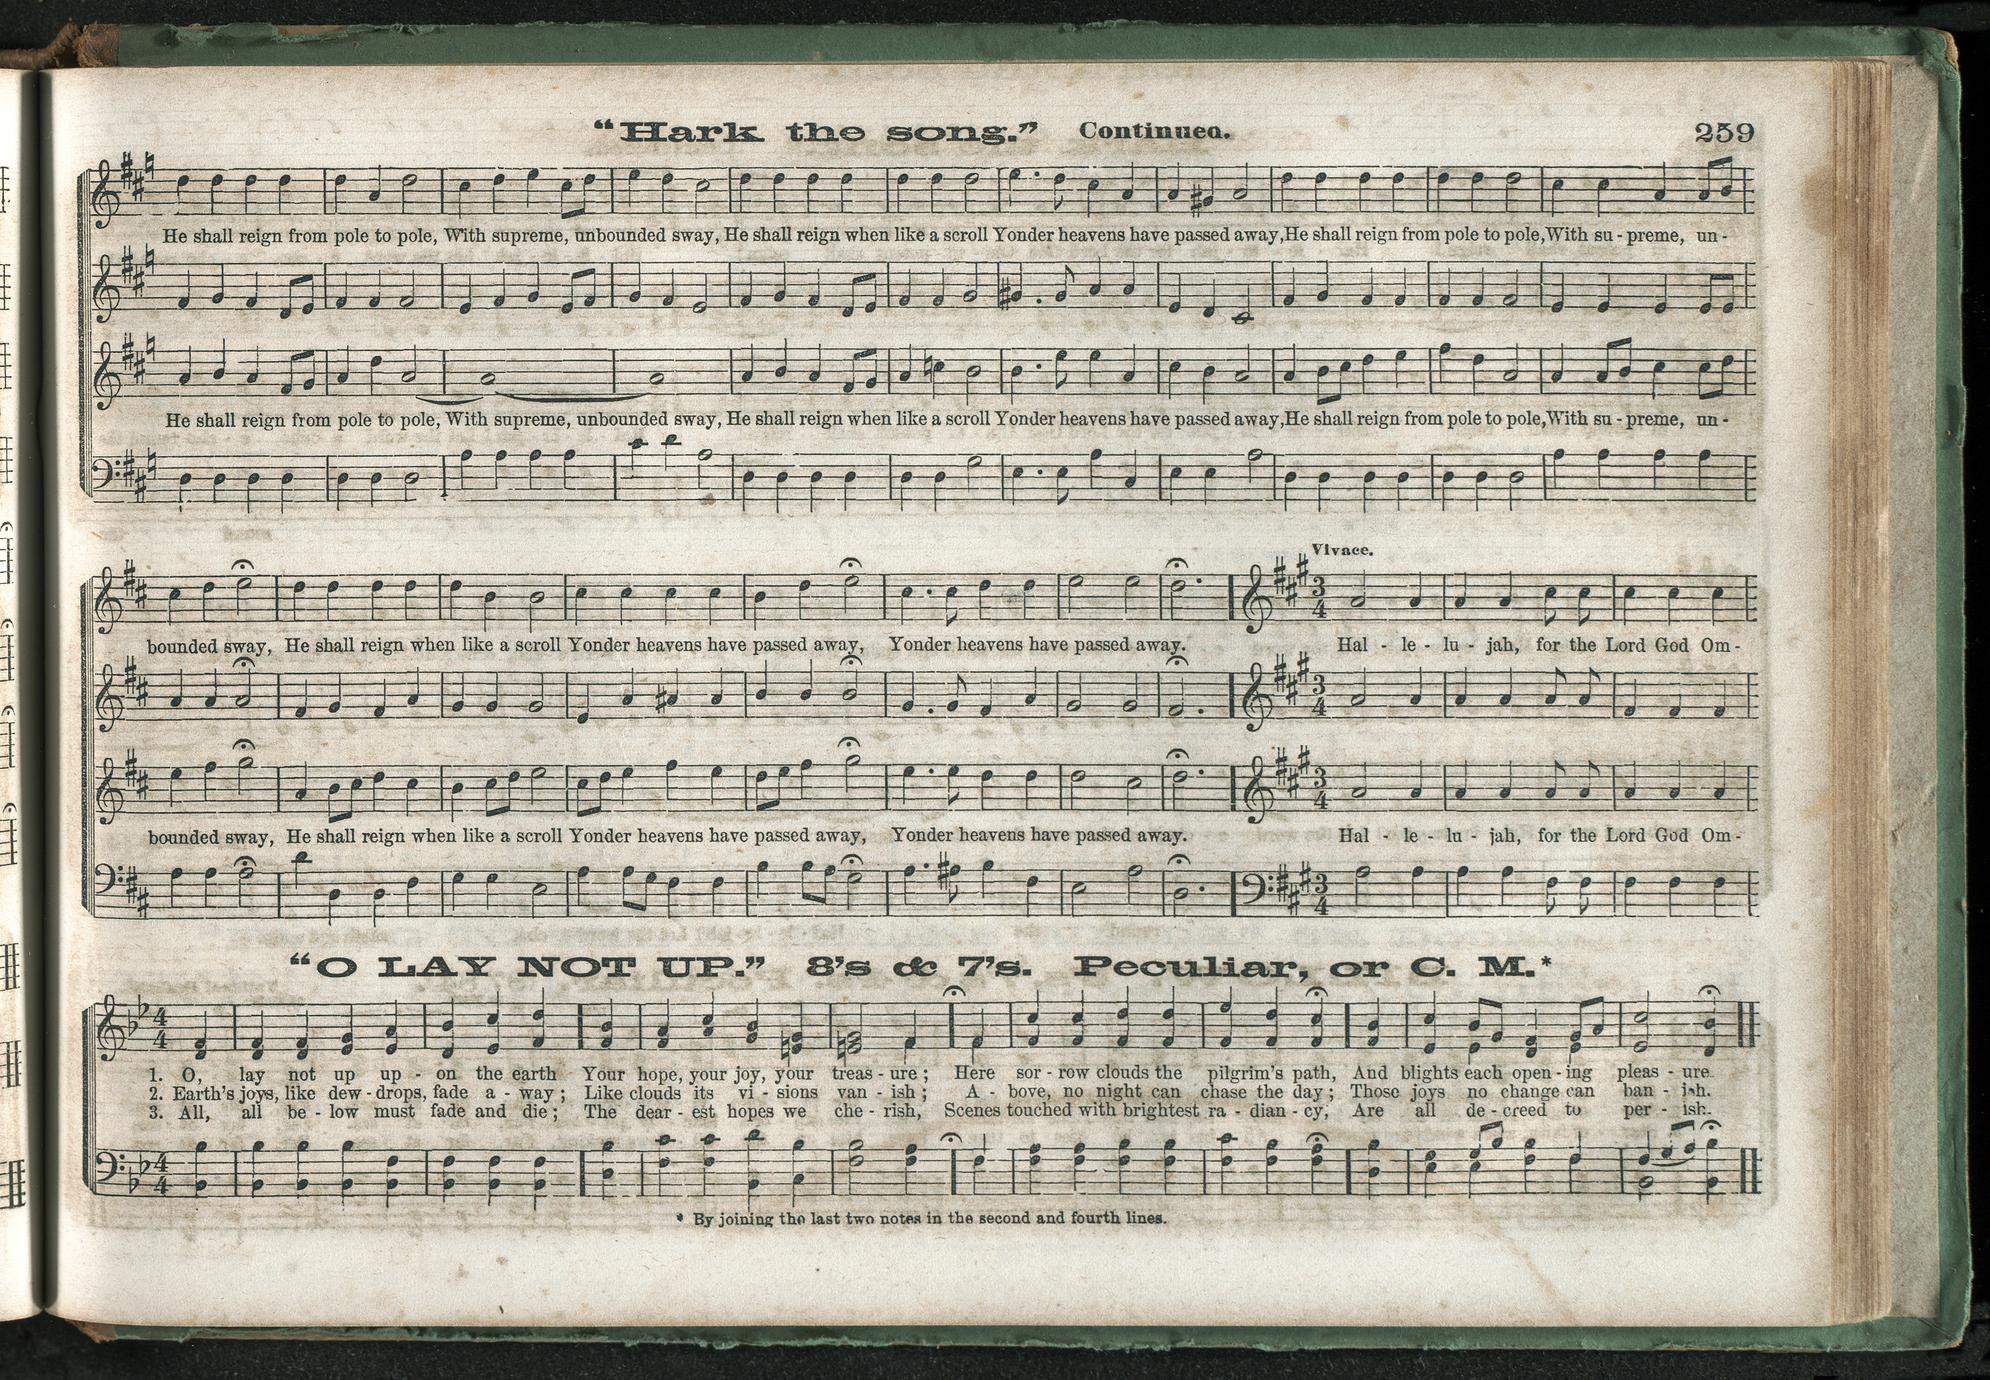 "Hark the song." Continued. 259
He shall reign from pole to pole, With supreme, unbounded sway, He shall reign when like a scroll Yonder heavens have passed away, He shall reign from pole to pole, With su - preme, un -
He shall reign from pole to pole, With supreme, unbounded sway, He shall reign when like a scroll Yonder heavens have passed away, He shall reign from pole to pole, With su - preme, un -
Vivace.
3
4
bounded sway, He shall reign when like a scroll Yonder heavens have passed away, Yonder heavens have passed away. Hal - le - lu - jah, for the Lord God Om -
3
4
3
4
bounded sway, He shall reign when like a scroll Yonder heavens have passed away, Yonder heavens have passed away. Hal - le - lu - jah, for the Lord God Om -
3
4
"O LAY NOT UP." 8's & 7's. Peculiar, or C. M.*
4
4
1. O, lay not up up - on the earth Your hope, your joy, your treas - ure; Here sor - row clouds the pilgrim's path, And blights each open - ing pleas - ure.
2. Earth's joys, like dew - drops, fade a - way; Like clouds its vi - sions van - ish; A - bove, no night can chase the day; Those joys no change can ban - ish.
3. All, all be - low must fade and die; The dear - est hopes we che - rish, Scenes touched with brightest ra - dian - cy, Are all de - creed to per - ish.
4
4
* By joining the last two notes in the second and fourth lines.